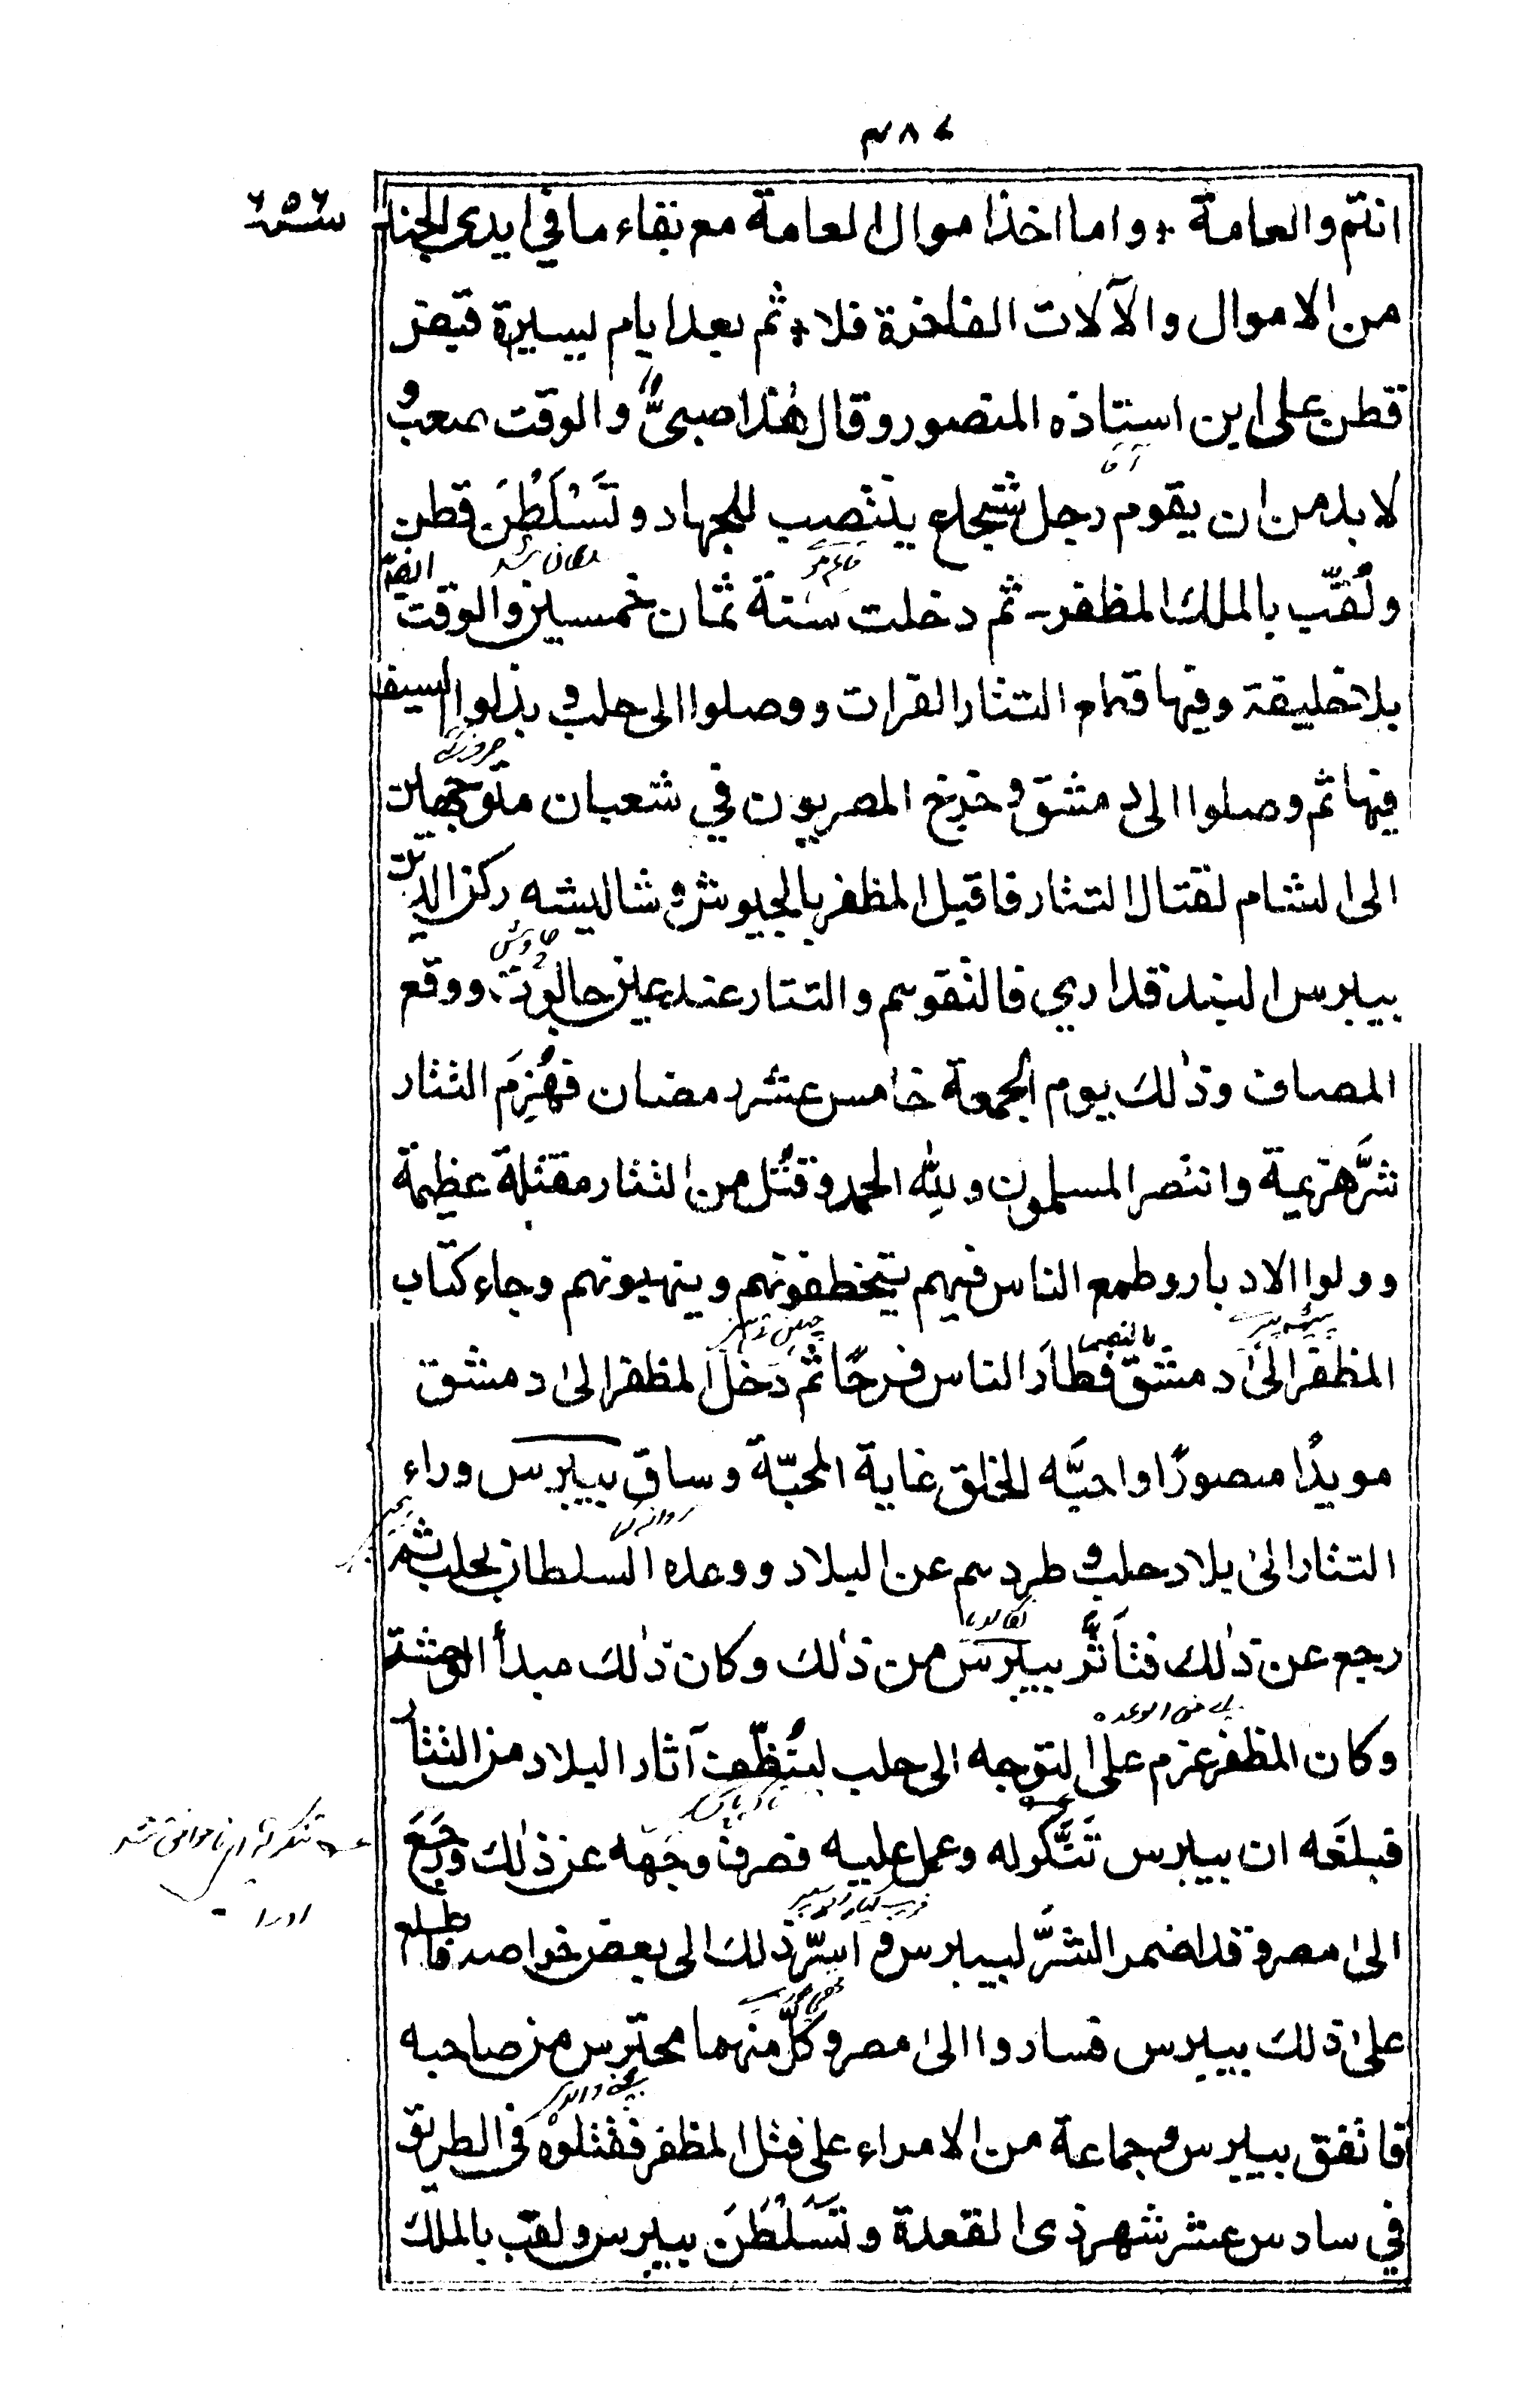 ٣٨٧
انتم والعامة ٭ واما اخذ اموال العامة مع بقاء ما في ايدي الجند
من الاموال والآلات الفاخرة فلا ٭ ثم بعد ايام يسيرة قبض
قطز على ابن استاذه المنصور وقال هٰذا صبيٌّ والوقت صعبٌ و
آقا
لا بد من ان يقوم رجل شجاع ينتصب للجهاد وتَسَلْطَنَ قطز
سلطان شد
ولُقّب بالملك المظفر ـ ثم دخلت سنة ثمان خمسين والوقت ايضًا
بلا خليفة وفيها قطع التتار الفرات ووصلوا الى حلب و بذلوا السيف
فيها ثم وصلوا الى دمشق و خرج المصريون في شعبان متوجهين
الى الشام لقتال التتار فاقبل المظفر بالجيوش و شاليشه ركن الدين
بيبرس البندقداري فالتقوهم والتتار عند عين جالوت ووقع
المصاف وذٰلك يوم الجمعة خامس عشر رمضان فهُزِمَ التتار
شرَّ هزيمة وانتصر المسلمون وللهِ الحمد وقُتل من التتار مقتلة عظيمة
وولوا الادبار وطمع الناس فيهم يتخطفونهم وينهبونهم وجاء كتاب
المظفر الىٰ دمشق فطارَ الناس فرحًا ثم دَخل المظفر الىٰ دمشق
مويدًا منصورًا واحبَّه الخلق غاية المحبّة وساق بيبرس وراء
التتار الىٰ بلاد حلب و طردهم عن البلاد ووعده السلطان بحلب ثم
رجع عن ذٰلك فتأثَّر بيبرس من ذٰلك وكان ذٰلك مبدأ الوحشة
وكان المظفر عزم على التوجه الى حلب ليُنظّف آثار البلاد من التتار
فبلغَه ان بيبرس تَنَكَّر له وعمل عليه فصرف وجهه عن ذٰلك ورَجَعَ
الىٰ مصر و قد اضمر الشرَّ لبيبرس و اسرّ ذٰلك الى بعض خواصه فاطلع
علىٰ ذٰلك بيبرس فساروا الىٰ مصر وكلٌّ منهما محترس من صاحبه
فاتفق بيبرس و جماعة من الامراء على قتل المظفر فقتلوه في الطريق
في سادس عشر شهر ذي القعدة وتَسَلْطَنَ بيبرس ولقب بالملك